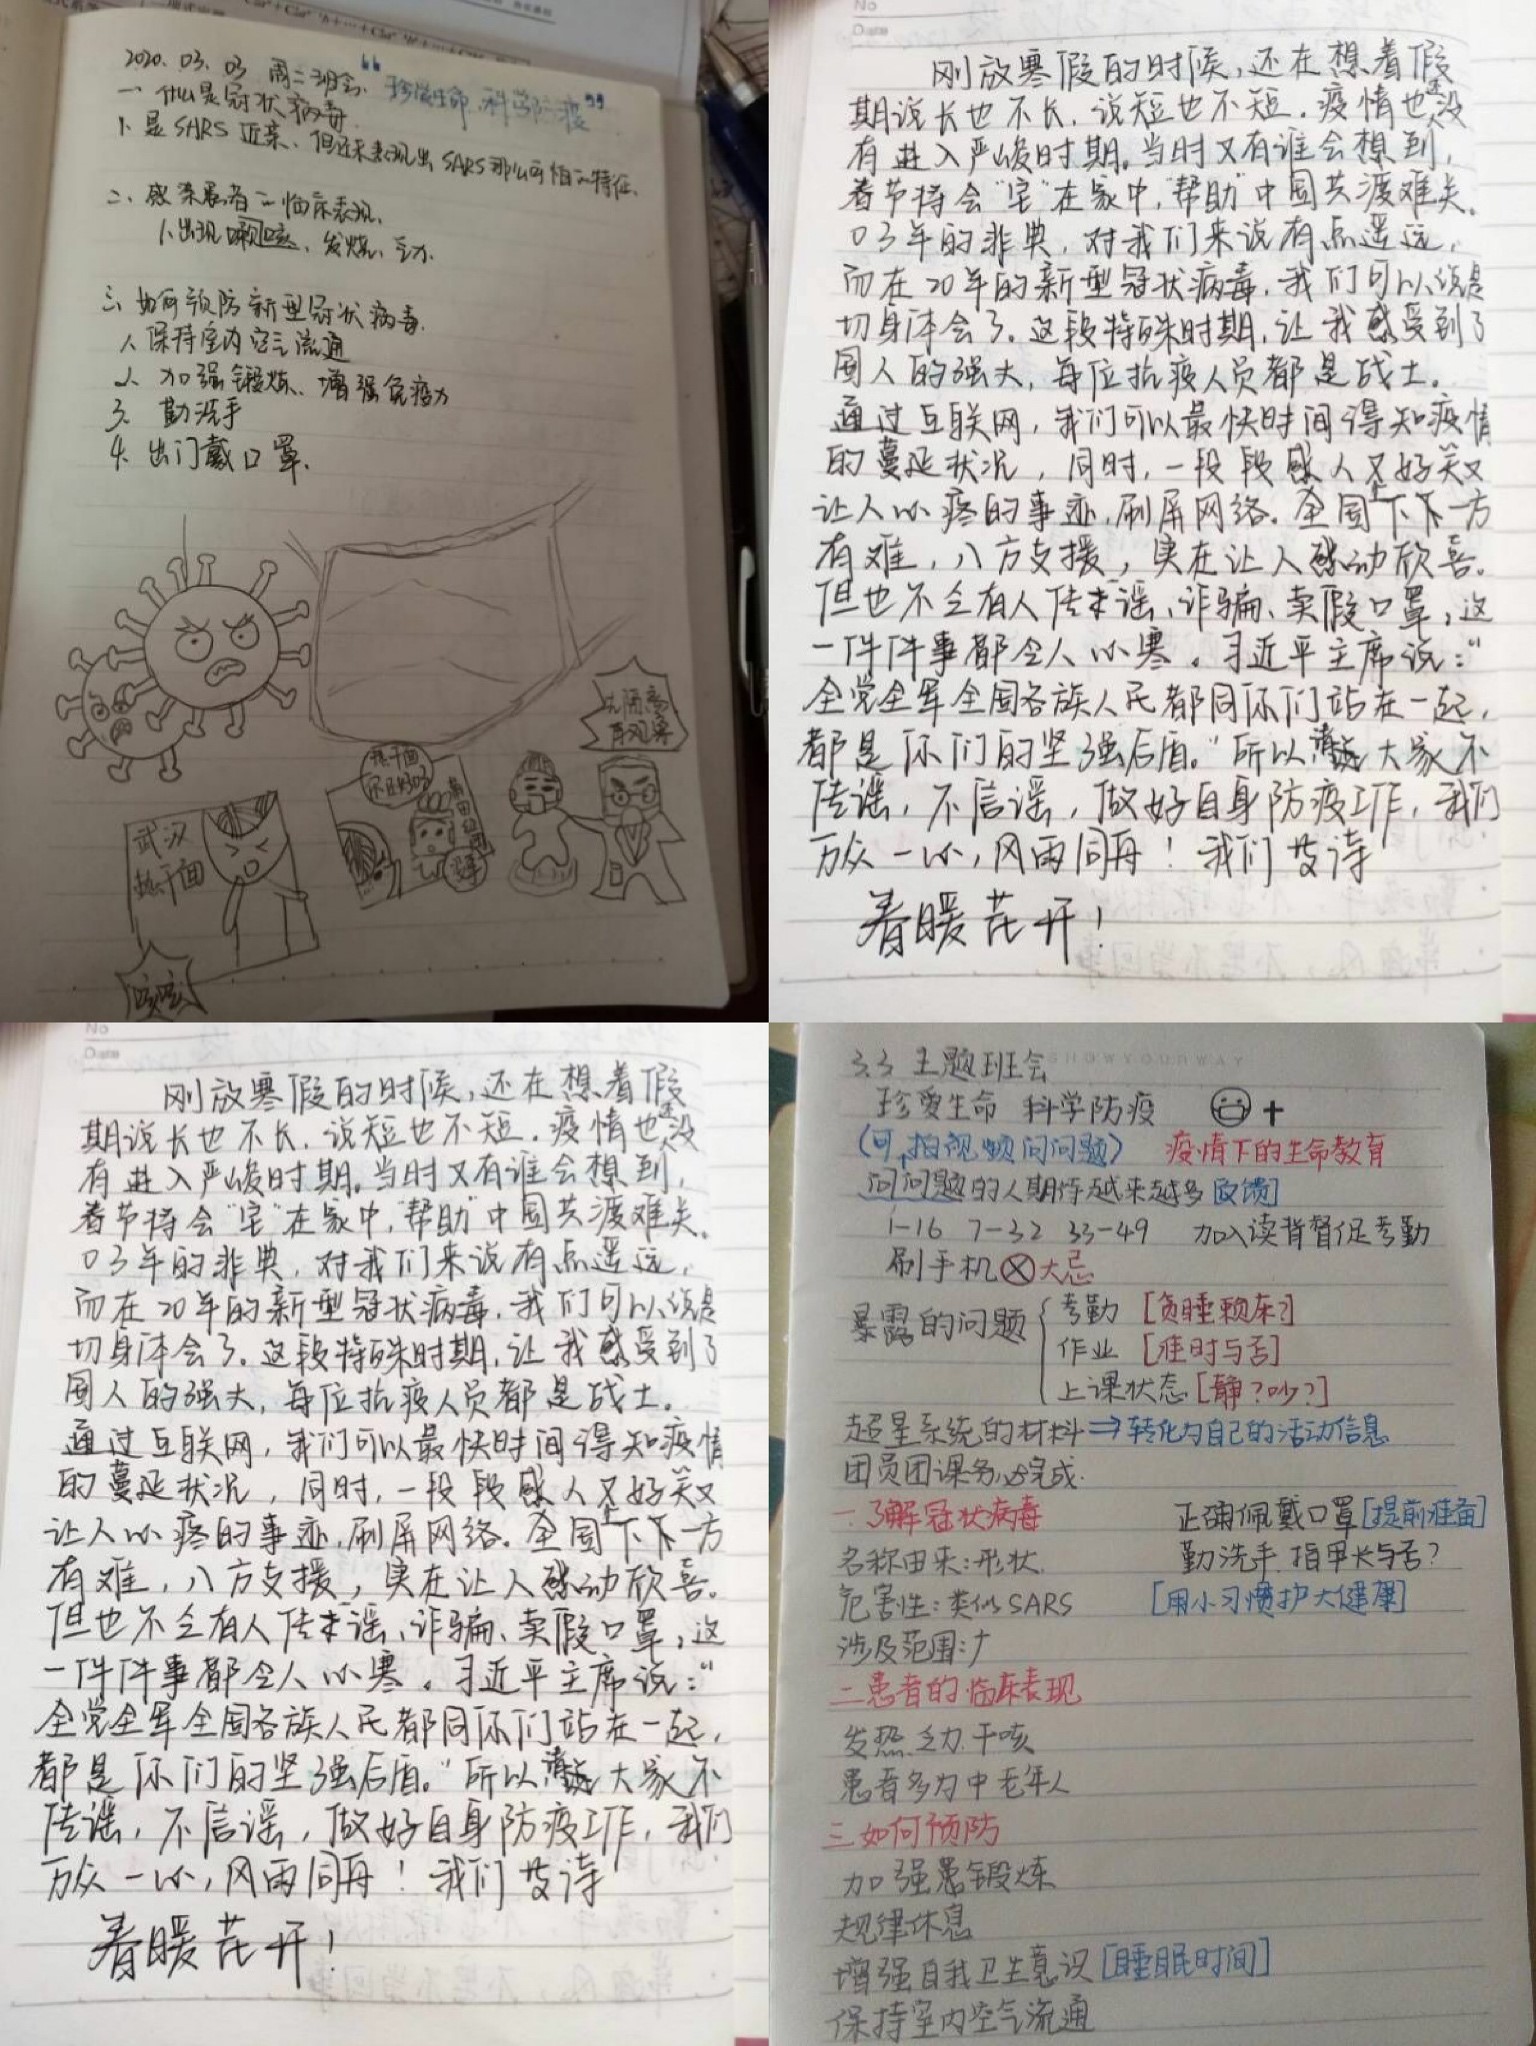 2020.03.03 周二班会 “珍爱生命 科学防疫”
一 什么是冠状病毒
1. 是SARS近亲、但还未表现出SARS那么可怕的特征.
二、感染患者的临床表现.
1.出现咽咳、发烧、乏力.
三. 如何预防新型冠状病毒.
1. 保持室内空气流通
2. 加强锻炼、增强免疫力
3. 勤洗手
4. 出门戴口罩.
先隔离
再观察
热干面
你还好吗
莆田
武汉
热干面
咳咳
No
Date
刚放寒假的时候,还在想着假
期说长也不长,说短也不短.疫情也还没
有进入严峻时期。当时又有谁会想到,
春节将会“宅”在家中,“帮助”中国共渡难关.
03年的非典,对我们来说有点遥远,
而在20年的新型冠状病毒,我们可以说是
切身体会了。这段特殊时期,让我感受到了
国人的强大,每位抗疫人员都是战士。
通过互联网,我们可以最快时间得知疫情
的蔓延状况,同时,一段段感人又好笑又
让人心疼的事迹,刷屏网络.全国上下下一方
有难,八方支援,实在让人感动欣喜。
但也不乏有人传谣、诈骗、卖假口罩,这
一件件事都令人心寒。习近平主席说:“
全党全军全国各族人民都同你们站在一起,
都是你们的坚强后盾。”所以请大家不
传谣,不信谣,做好自身防疫工作,我们
万众一心,风雨同舟!我们女诗
春暖花开!
No
Date
刚放寒假的时候,还在想着假
期说长也不长,说短也不短.疫情也还没
有进入严峻时期。当时又有谁会想到,
春节将会“宅”在家中,“帮助”中国共渡难关.
03年的非典,对我们来说有点遥远,
而在20年的新型冠状病毒,我们可以说是
切身体会了。这段特殊时期,让我感受到了
国人的强大,每位抗疫人员都是战士。
通过互联网,我们可以最快时间得知疫情
的蔓延状况,同时,一段段感人又好笑又
让人心疼的事迹,刷屏网络.全国上下下一方
有难,八方支援,实在让人感动欣喜。
但也不乏有人传谣、诈骗、卖假口罩,这
一件件事都令人心寒。习近平主席说:“
全党全军全国各族人民都同你们站在一起,
都是你们的坚强后盾。”所以请大家不
传谣,不信谣,做好自身防疫工作,我们
万众一心,风雨同舟!我们女诗
春暖花开!
SHOWYOURWAY
3.3 主题班会
珍爱生命 科学防疫
(可,拍视频问问题) 疫情下的生命教育
问问题的人期待越来越多[反馈]
1-16 7-32 33-49 加入读背督促考勤
刷手机⊗大忌
暴露的问题 考勤 [贪睡赖床?]
作业 [准时与否]
上课状态[静?吵?]
超星系统的材料⇒转化为自己的活动信息
团员团课务必完成.
一.了解冠状病毒 正确佩戴口罩[提前准备]
名称由来:形状. 勤洗手.指甲长与否?
危害性:类似SARS [用小习惯护大健康]
涉及范围:广
二患者的临床表现
发热.乏力.干咳
患者多为中老年人
三.如何预防
加强锻炼
规律休息
增强自我卫生意识[睡眠时间]
保持室内空气流通